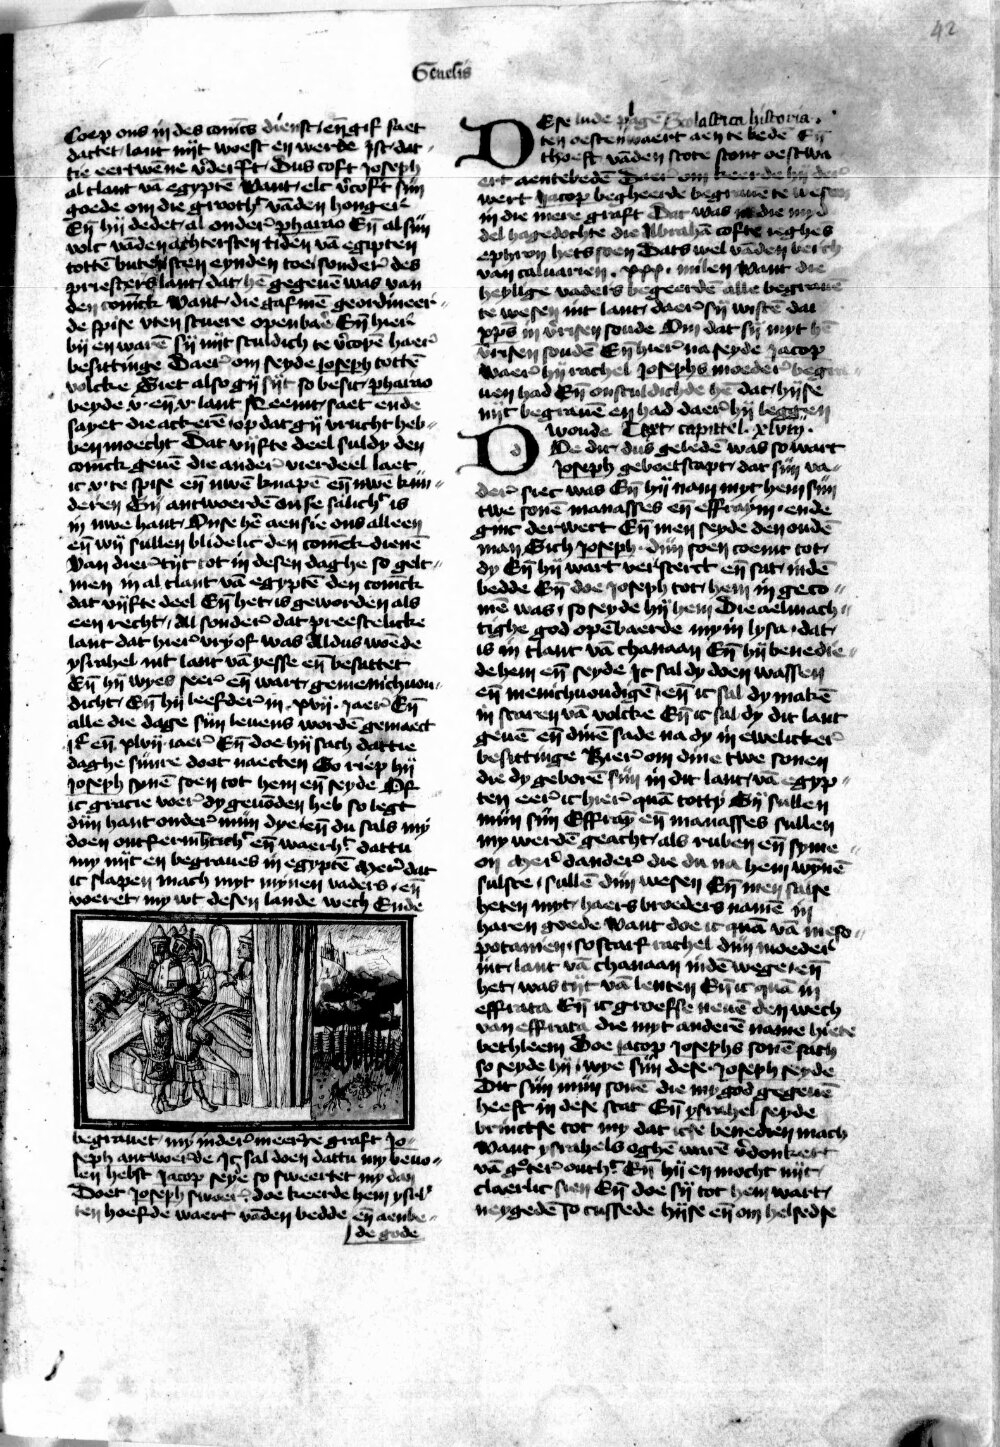 42
Genesis
Coep ons in des conīcs dienst eñ gif saet
dattet lant nijt woest en werde Jst dat
tie eertwēne v̄derft Dus coft Joseph
al tlant vā egyptē Want elc v̄coft sijn
goede om die grooth̓ vāden honger
Eñ hij dedet al onder̓ pharao Eñ al sijn
volc vāden achtersten tiden vā egipten
tottē butensten eynden toe sonder̓ des
priesters lant dat hē gegeuē was van
den conīck Want die gafmē geordineer
de spise vten scuere openbaer̓ Eñ hier̓
bij en warē sij nijt sculdich te v̄copē haer̓
besittinge Daer̓ om seyde Joseph tottē
volcke Siet also gij sijt so besit pharao
beyde v eñ v lant Neemt saet ende
sayet die ackerē op dat gij vrucht heb
ben moecht Dat vijfte deel suldy den
conīck geuē die ander̓ vierdeel laet
ic v te spise eñ uwē knapē eñ uwē kin
deren Sij antwoerdē onse salich̓ is
in uwe hant Onse hē aensie ons alleen
eñ wij sullen blidelic den conīck dienē
Van dier̓ tijt tot in desen daghe so gelt
men in al tlant vā egyptē den conīck
dat vijfte deel Eñ het is geworden als
een recht Al sonder̓ dat preestelicke
lant dat hier̓ vrij of was Aldus woēde
ysrahel int lant vā yesse eñ besittet
Eñ hij wyes seer̓ eñ wart gemenichuou
dicht Eñ hij leefder̓ in xvij Jaer̓ Eñ
alle die dage sijn leuens wordē gemaect
jͨ eñ xlvij iaer̓ Eñ doe hij sach dattie
daghe sijnre doot naecten So riep hij
Joseph synē soen tot hem eñ seyde Of
ic gracie voer̓ dy geuōden heb so legt
dijn hant onder̓ mijn dye eñ du sals mȳ
doen ontfermhtich̓ eñ waerh̓ dattu
my nijt en begraues in egyptē Mer̓ dat
ic slapen mach myt mynen vaders eñ
voeret my wt desen lande wech Ende
begrauet my inder̓ meerre graft Jo
seph antwoerde Jc sal doen dattu my beuo
len hebst Jacop seyde so sweertet my dan
Doet Joseph swoer̓ doe keerde hem ysrl̓
ten hoefde waert vāden bedde eñ aenbe
de gode
Dese lude plagē Scolastica historia
ten oestenwaert aen te bedē Eñ
thoeft vāden scote stont oestwa
ert aentebedē Daer̓ om keerde hij der̓
wert Jacop begheerde begraue te wesen
in die mere graft Dat was die myd
del hagedochte die Abrahā cofte ieghes
ephron hets soen Dats wel vāden berch
van caluarien xxx milen Want die
heylige vaders begeerdē alle begrauē
te wesen int lant daer̓ sij wistē dat
xp̄s in v̄risen soude Om dat sij myt hē
v̄risen soudē Eñ hier̓ na seyde Jacop
waer̓ hij rachel Josephs moeder̓ begra
uen had Eñ onsculdichde hē dat hijse
nijt begrauē en had daer̓ hij leggen
woude Text capittel xlviij
Doe dit dus geledē was so wart
Joseph geboetscapt dat sijn va
der̓ siec was Eñ hij nam myt hem sijn
twe sonē manasses eñ effraym ende
ginc derwert Eñ men seyde den oudē
man Sich Joseph dijn soen coemt tot
dy Eñ hij wart versterct eñ sat indē
bedde Eñ doe Joseph tot hem in geco
mē was so seyde hij hem Die aelmach
tighe god opēbaerde my in lysa dat
is in tlant vā chanaan Eñ hij benedie
de hem eñ seyde Jc sal dy doen wassen
eñ menichuoudigē eñ ic sal dy makē
in scaren vā volcke Eñ ic sal dy dit lant
geuē eñ dinē sade na dy in ewelicker̓
besittinge Hier̓ om dine twe sonen
die dy geborē sijn in dit lant vā egyp
ten eer̓ ic hier̓ quā totty Sij sullen
mijn sijn Effray eñ manasses sullen
my werdē geacht als ruben eñ syme
on Mer̓ dander̓ die du na hem wynē
sulste sullē dijn wesen Eñ men salse
heten myt haers broeders namē in
haren goede Want doe ic quā vā meso
potamen so starf rachel dijn moeder̓
int lant vā chanaan indē wege eñ
het was tijt vā lenten Eñ ic quā in
effrata Eñ ic groefse neuē den wech
van effrata die myt anderē name hiete
bethleem Doe Jacop Josephs sonē sach
so seyde hij wye sijn dese Joseph seyde
Dit sijn mijn sonē die my god gegeuē
heeft in dese stat Eñ ysrahel seyde
brinctse tot my dat icse benedien mach
Want ysrahels oghē waren v̄donkert
vā groter̓ outh̓ Eñ hij en mocht nijt
claerlic sien Eñ doe sij tot hem wart
neygedē so cussede hijse eñ om helsedse